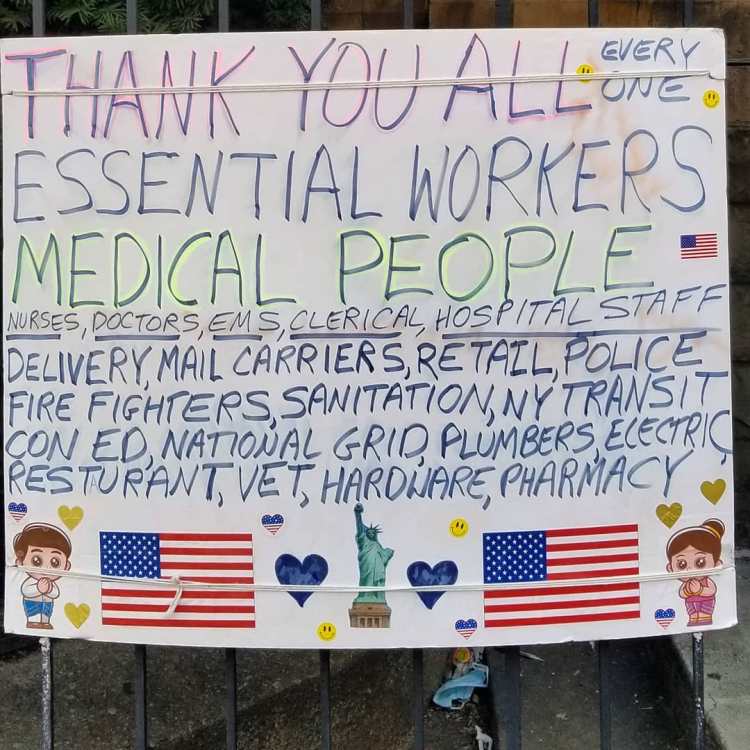 THANK YOU ALL EVERY ONE
ESSENTIAL WORKERS
MEDICAL PEOPLE
NURSES, DOCTORS, EMS, CLERICAL, HOSPITAL STAFF
DELIVERY, MAIL CARRIERS, RETAIL, POLICE
FIRE FIGHTERS, SANITATION, NY TRANSIT
CON ED, NATIONAL GRID, PLUMBERS, ELECTRIC,
RESTURANT, VET, HARDWARE, PHARMACY